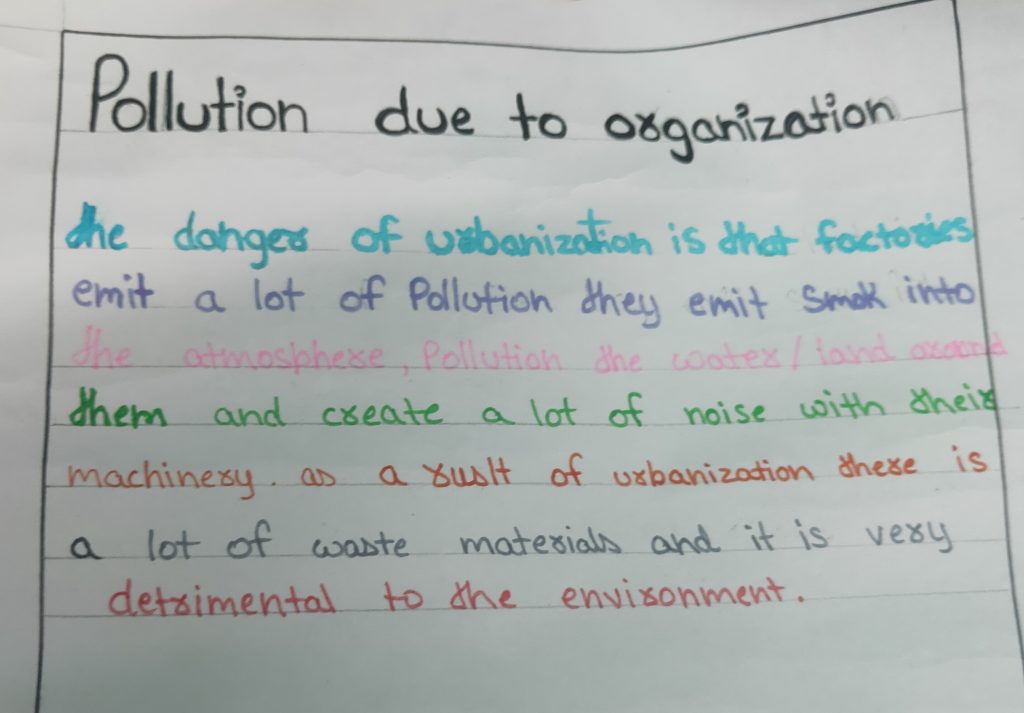 Pollution due to organization
the danger of urbanization is that factories
emit a lot of Pollution they emit Smok into
the atmosphere, Pollution the water/land around
them and create a lot of noise with their
machinery. as a ruslt of urbanization there is
a lot of waste materials and it is very
detrimental to the environment.